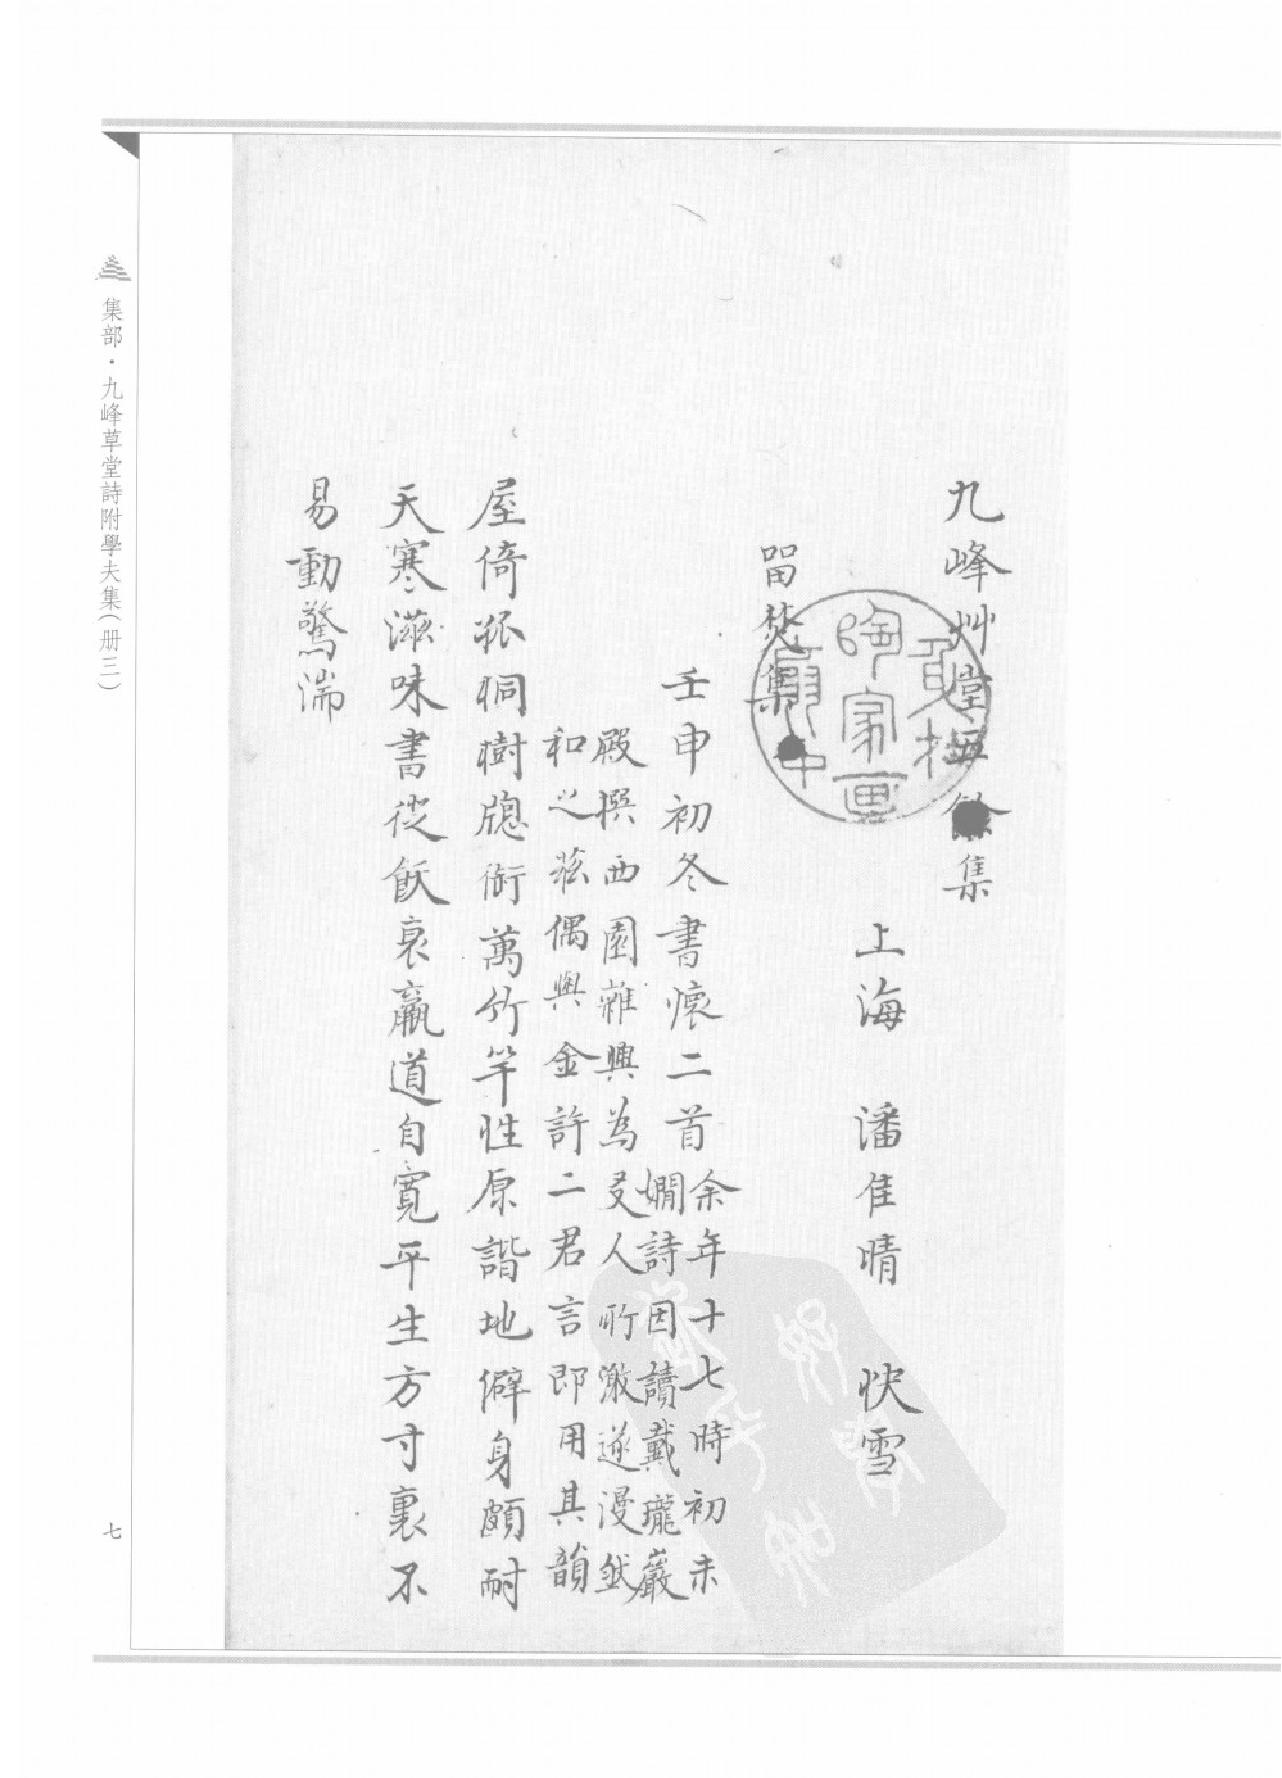 九峰艸堂集
上海　潘隹晴　快雪
畱焚集
壬申初冬書懷二首余年十七時初未
嫺詩因讀戴瓏巖
殿撰西園雜興為友人所激遂漫然
和之茲偶與金許二君言即用其韻
屋倚孤桐樹牕銜萬竹竿性原諧地僻身頗耐
天寒滋味書從飫衰羸道自寬平生方寸裏不
易動驚湍
集部·九峰草堂詩附學夫集（册三）
七